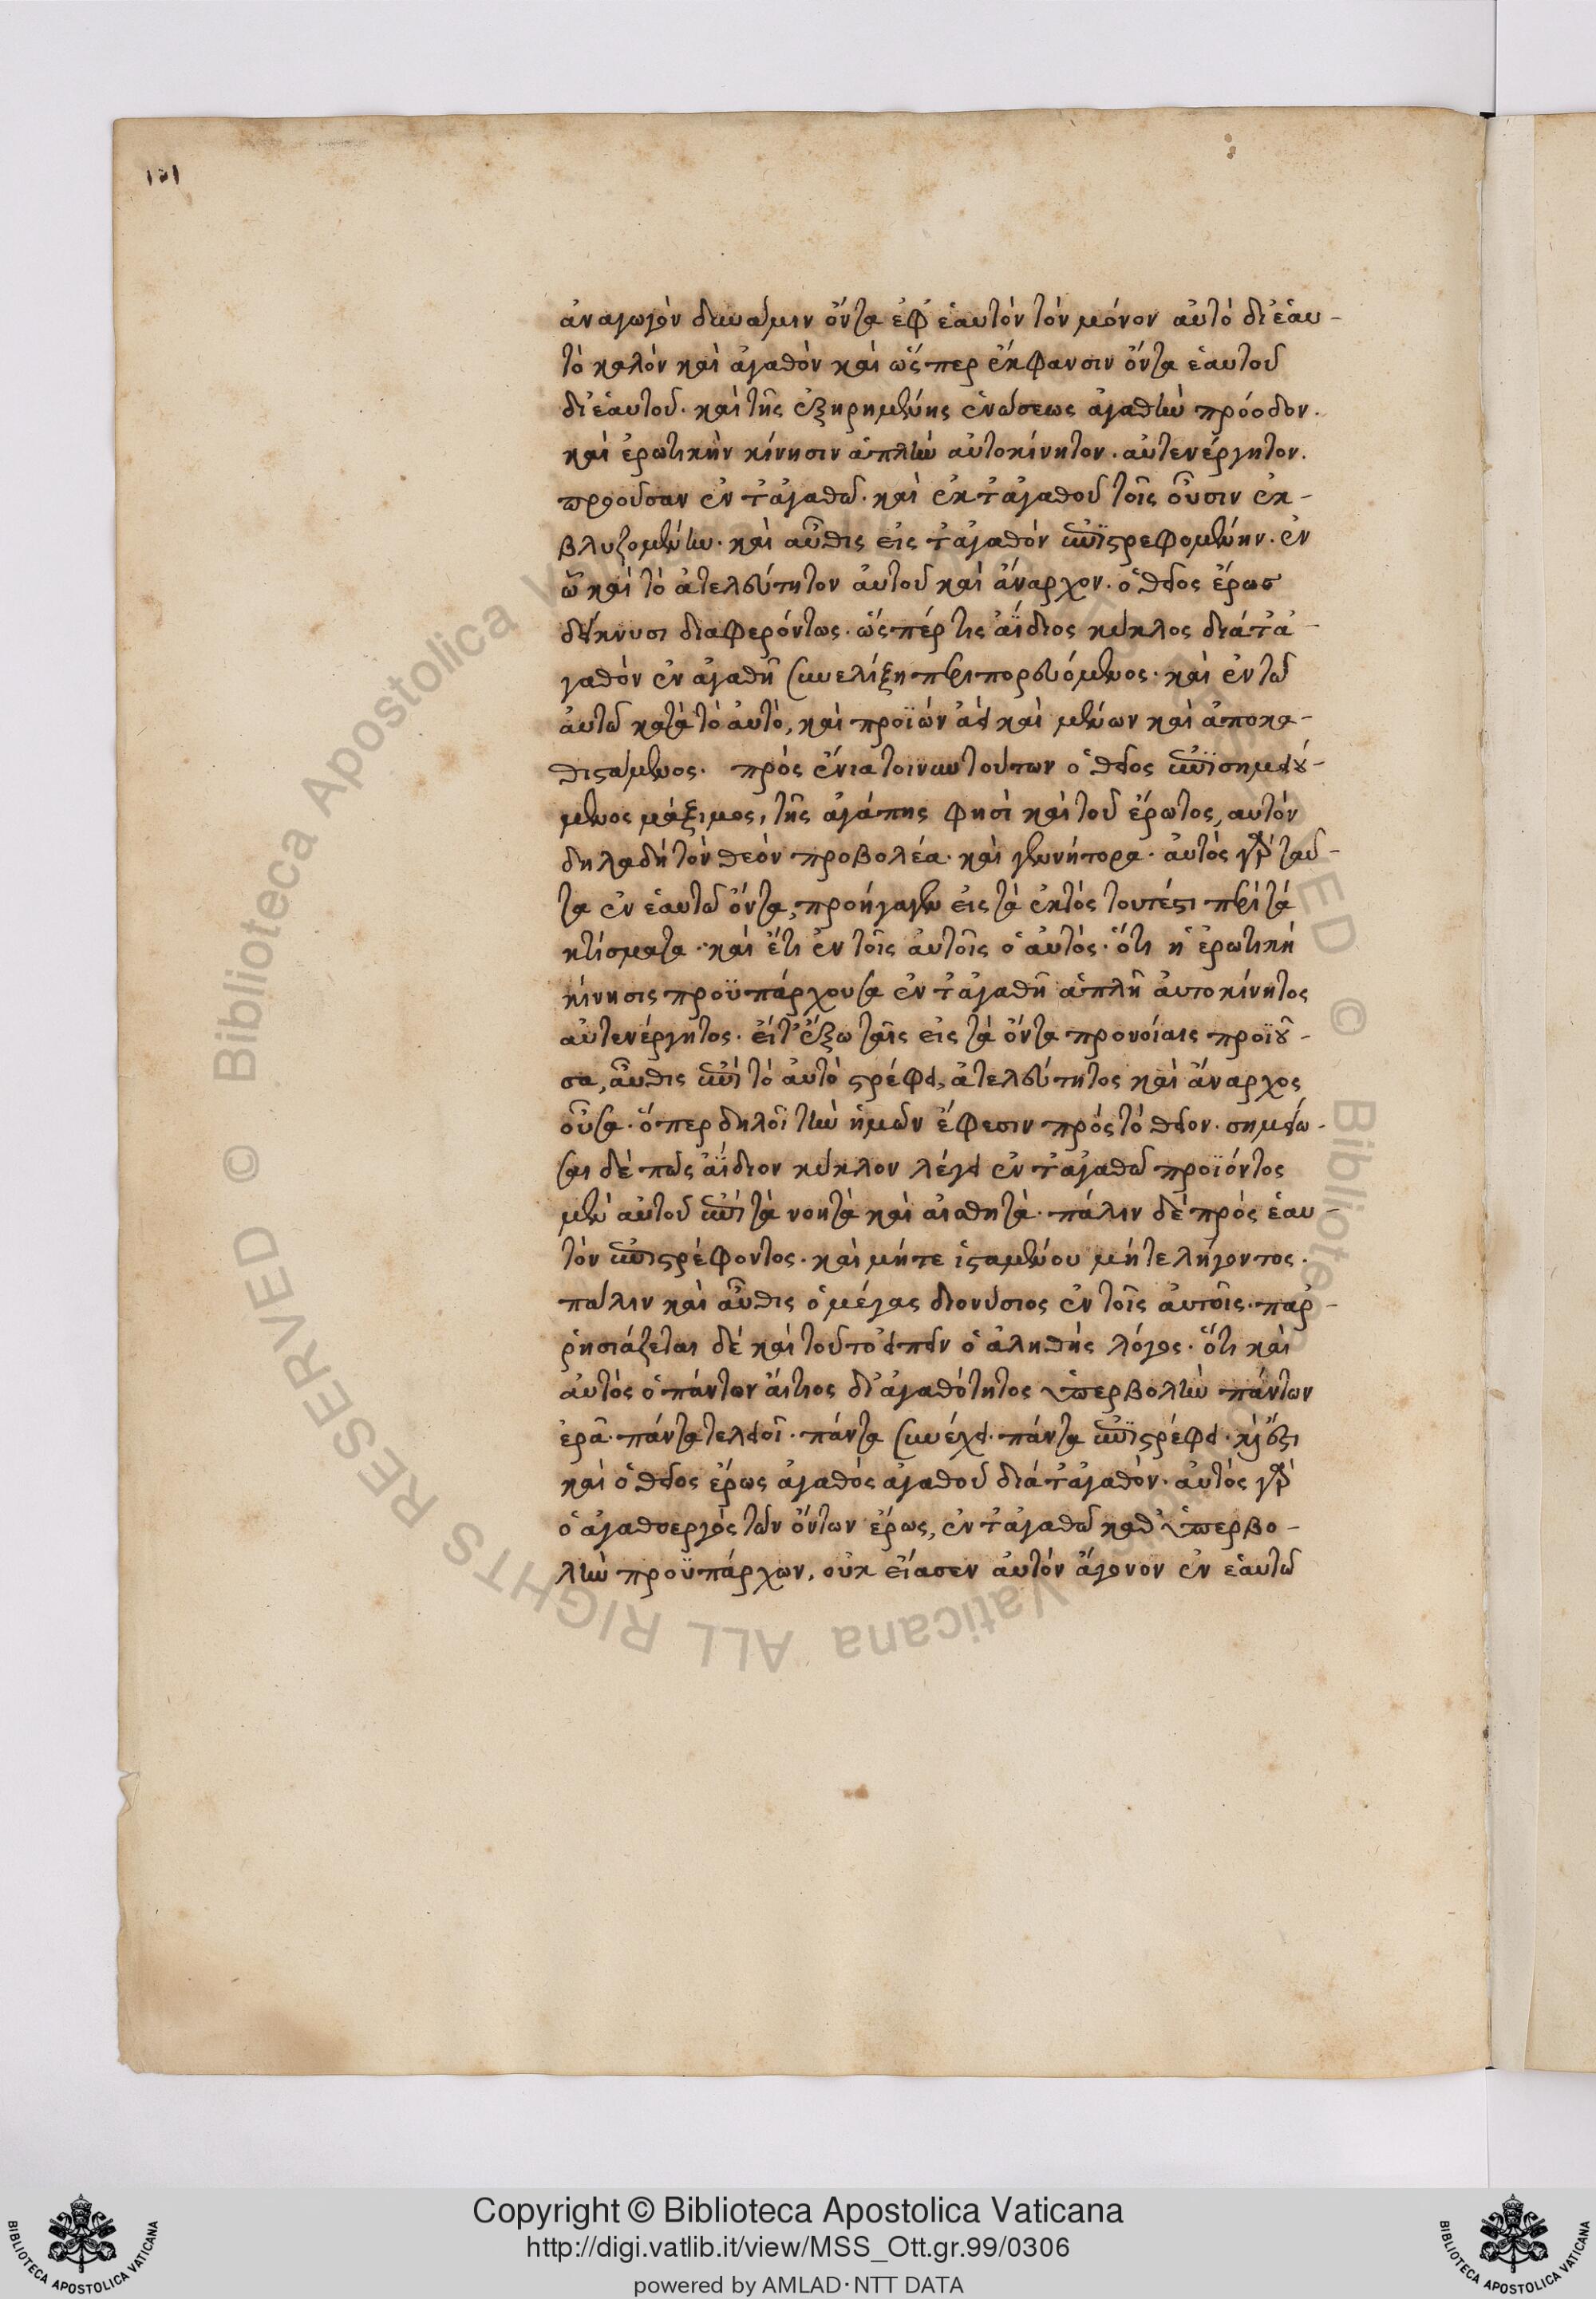 151
ἀναγωγὸν δύναμιν ὄντα ἐφ' ἑαυτὸν τὸν μόνον αὐτὸ δι' ἑαυ-
τὸ καλὸν καὶ ἀγαθὸν καὶ ὥσπερ ἔκφανσιν ὄντα ἑαυτοῦ
δι' ἑαυτοῦ. καὶ τῆς ἐξηρημένης ἑνώσεως ἀγαθὴν πρόοδον.
καὶ ἐρωτικὴν κίνησιν ἁπλὴν αὐτοκίνητον. αὐτενέργητον.
προοῦσαν ἐν τἀγαθῷ. καὶ ἐκ τἀγαθοῦ τοῖς οὖσιν ἐκ-
βλυζομένην. καὶ αὖθις εἰς τἀγαθὸν ἐπϊστρεφομένην. ἐν
ᾧ καὶ τὸ ἀτελεύτητον αὐτοῦ καὶ ἄναρχον. ὁ θεῖος ἔρως
δείκνυσι διαφερόντως. ὥσπέρ τις ἀΐδιος κύκλος διὰ τἀ-
γαθὸν ἐν ἀγαθῇ συνελίξη περιπορευόμενος. καὶ ἐν τῷ
αὐτῷ κατὰ τὸ αὐτὸ, καὶ προϊὼν ἀεὶ καὶ μένων καὶ ἀποκα-
θιστάμενος. πρὸς ἔνια τοίνυν τούτων ὁ θεῖος ἐπϊσημειού-
μενος μάξιμος, τῆς ἀγάπης φησὶ καὶ τοῦ ἔρωτος, αυτὸν
δηλαδὴ τὸν θεὸν προβολέα. καὶ γεννήτορα. αὐτὸς γὰρ ταῦ-
τα ἐν ἑαυτῷ ὄντα, προήγαγεν εἰς τὰ ἐκτὸς τουτέστι περὶ τὰ
κτίσματα. καὶ ἔτι ἐν τοῖς αὐτοῖς ὁ αὐτὸς. ὅτι ἡ ἐρωτικὴ
κίνησις προϋπάρχουσα ἐν τἀγαθῆ ἁπλῆ ἀυτοκίνητος
αὐτενέργητος. εἶτ' ἔξω ταῖς εἰς τὰ ὄντα προνοίαις προϊοῦ-
σα, αὖθις ἐπὶ τὸ αὐτὸ στρέφει, ἀτελεύτητος καὶ ἄναρχος
οὖσα. ὅπερ δηλοῖ τὴν ἡμῶν ἔφεσιν πρὸς τὸ θεῖον. σημείω-
σαι δὲ πῶς ἀΐδιον κύκλον λέγει ἐν τἀγαθῷ προϊόντος
μὲν αὐτοῦ ἐπὶ τὰ νοητὰ καὶ αἰσθητὰ. πάλιν δὲ πρὸς ἑαυ-
τὸν ἐπιστρέφοντος. καὶ μήτε ἱσταμένου μήτε λήγοντος.
πάλιν καὶ αὖθις ὁ μέγας διονύσιος ἐν τοῖς ἀυτοῖς. παρ-
ῥησιάζεται δὲ καὶ τοῦτο εἰπεῖν ὁ ἀληθὴς λόγος. ὅτι καὶ
αὐτὸς ὁ πάντων ἄιτιος δι' ἀγαθότητος ὑπερβολὴν πάντων
ἐρᾶ. πάντα τελειοῖ. πάντα συνέχει. πάντα ἐπϊστρέφει. κὶ ἔστι
καὶ ὁ θεῖος ἔρως ἀγαθὸς ἀγαθοῦ διὰ τἀγαθὸν. αὐτὸς γὰρ
ὁ ἀγαθοεργὸς τῶν ὄντων ἔρως, ἐν τἀγαθῷ καθ' ὑπερβο-
λὴν προϋπάρχων, οὐκ εἴασεν αὐτὸν ἄγονον ἐν ἑαυτῷ
Copyright © Biblioteca Apostolica Vaticana
http://digi.vatlib.it/view/MSS_Ott.gr.99/0306
powered by AMLAD·NTT DATA